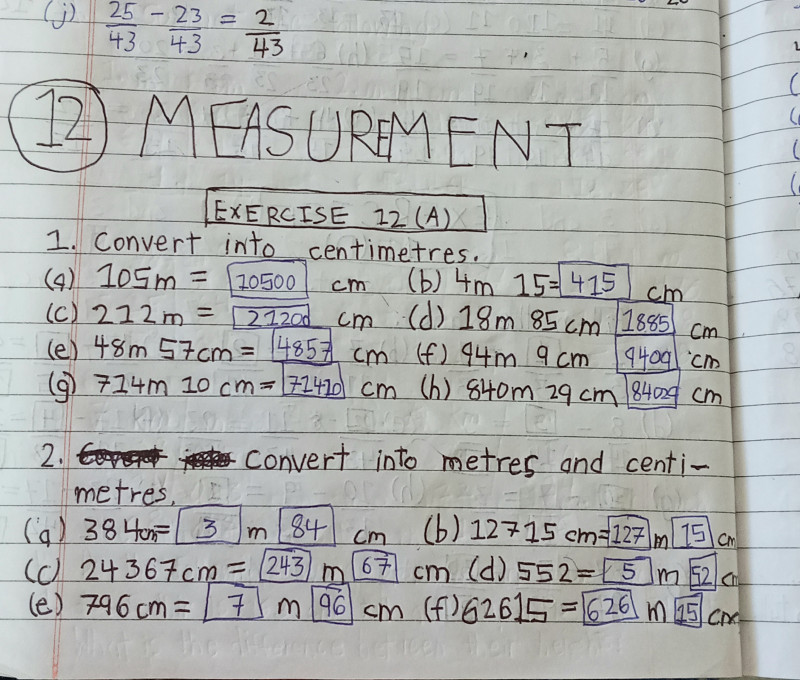 (j) 25/43 - 23/43 = 2/43
12 MEASUREMENT
EXERCISE 12 (A)
1. Convert into centimetres.
(a) 105m = 10500 cm (b) 4m 15= 415 cm
(c) 212m = 21200 cm (d) 18m 85 cm 1885 cm
(e) 48m 57cm = 4857 cm (f) 94m 9 cm 9409 cm
(g) 714m 10 cm = 71410 cm (h) 840m 29 cm 84029 cm
2. Convert into metres and centi-
metres.
(a) 384cm= 3 m 84 cm (b) 12715 cm= 127 m 15 cm
(c) 24367cm = 243 m 67 cm (d) 552 = 5 m 52 cm
(e) 796cm = 7 m 96 cm (f) 62615 = 626 m 15 cm